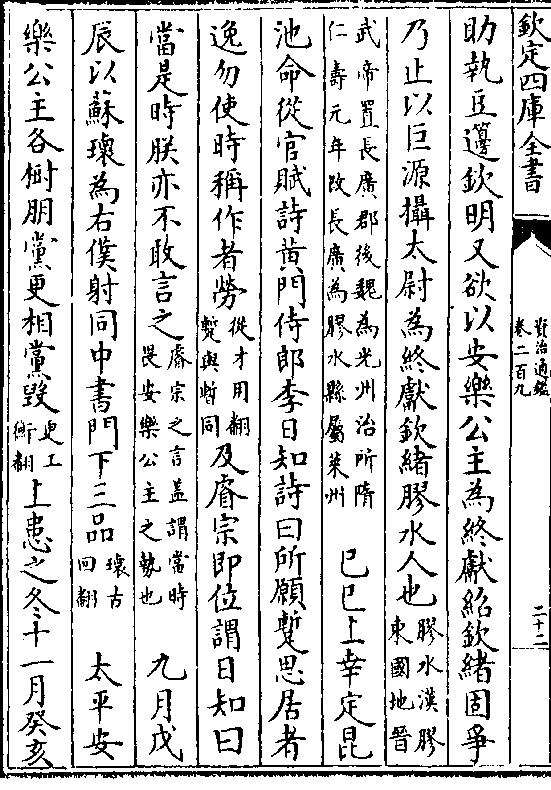 欽定四庫全書
資治通鑑
卷二百九
二十二
助執豆籩欽明又欲以安樂公主為終獻紹欽緒固爭
乃止以巨源攝太尉為終獻欽緒膠水人也膠水漢膠東國地晉
武帝置長廣郡後魏為光州治所隋仁壽元年改長廣為膠水縣屬萊州 己巳上幸定昆
池命從官賦詩黃門侍郎李日知詩曰所願蹔思居者
逸勿使時稱作者勞從才用翻蹔與暫同及睿宗即位謂日知曰
當是時朕亦不敢言之睿宗之言蓋謂當時畏安樂公主之勢也 九月戊
辰以蘇瓌為右僕射同中書門下三品瓌古回翻 太平安
樂公主各樹朋黨更相黨毀更工衡翻上患之冬十一月癸亥